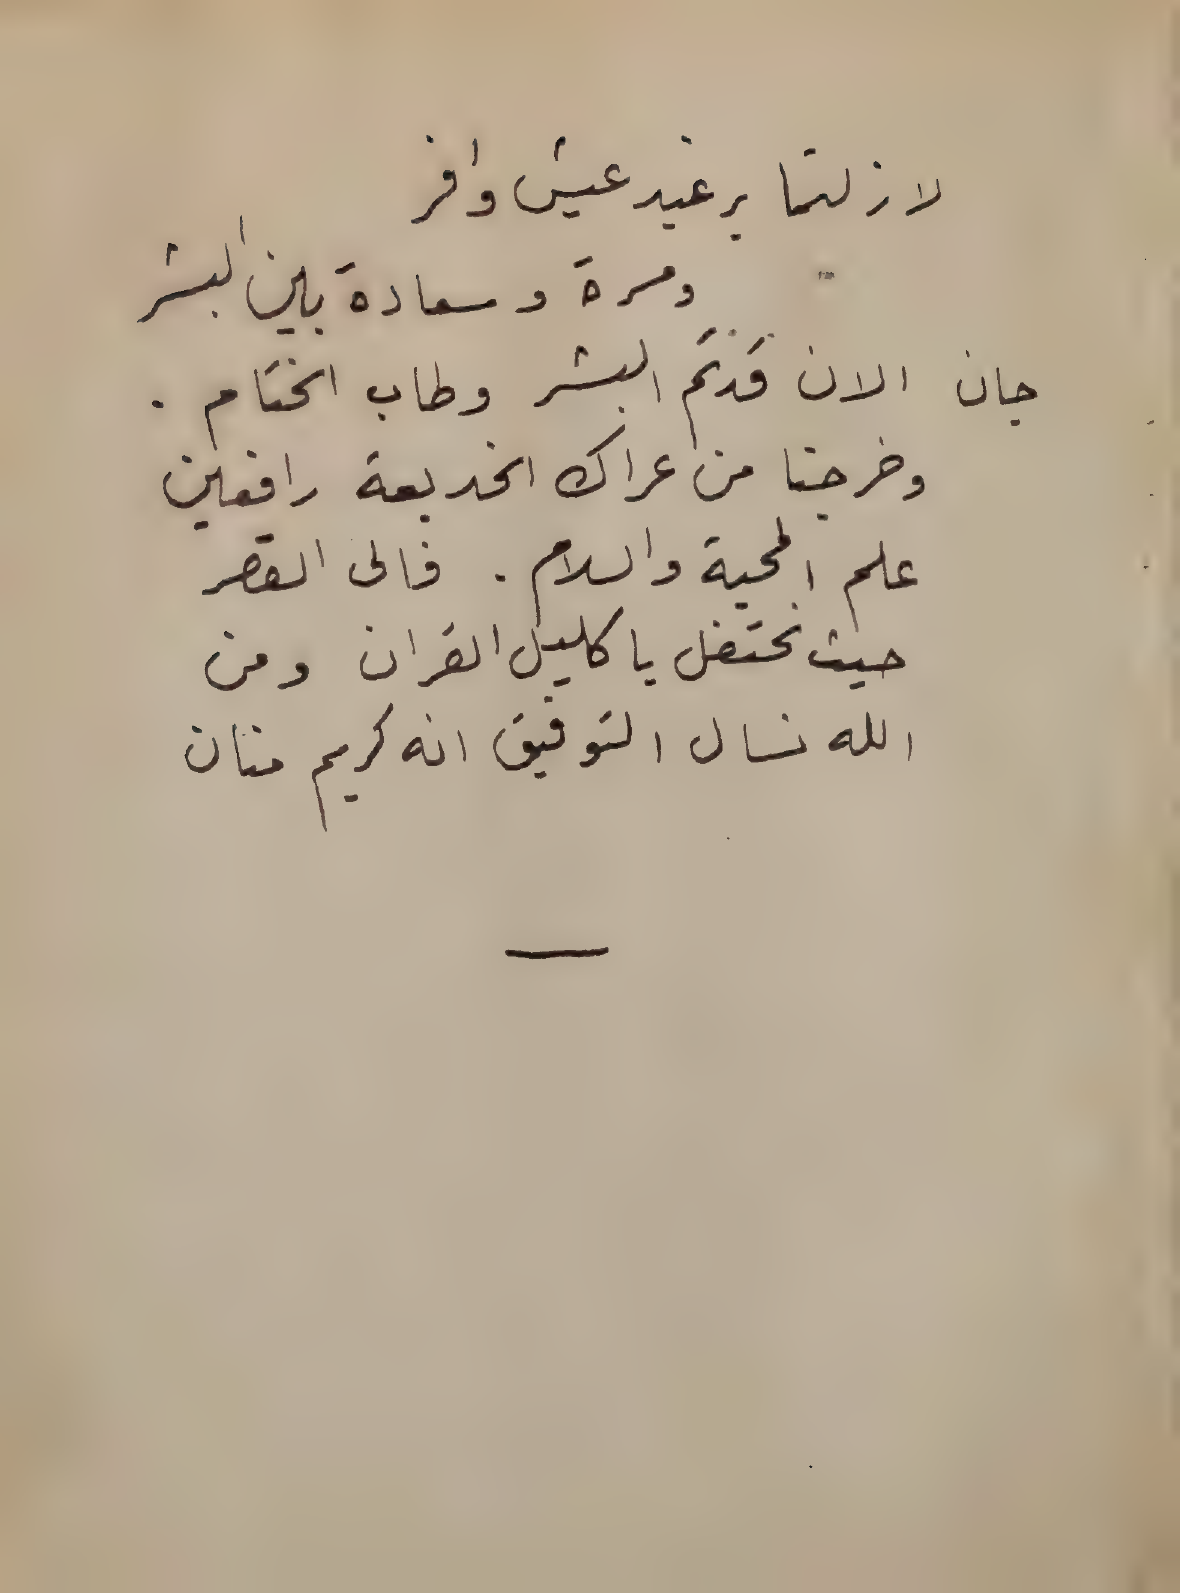 لازلتما برغيد عيش وافر
ومسرة وسعادة بين البشر
جان الان قد تم البشر وطاب الختام .
وخرجنا من عراك الخديعة رافعين
علم المحبة والسلام . فالى القصر
حيث نحتفل باكليل القران ومن
الله نسال التوفيق انه كريم منان